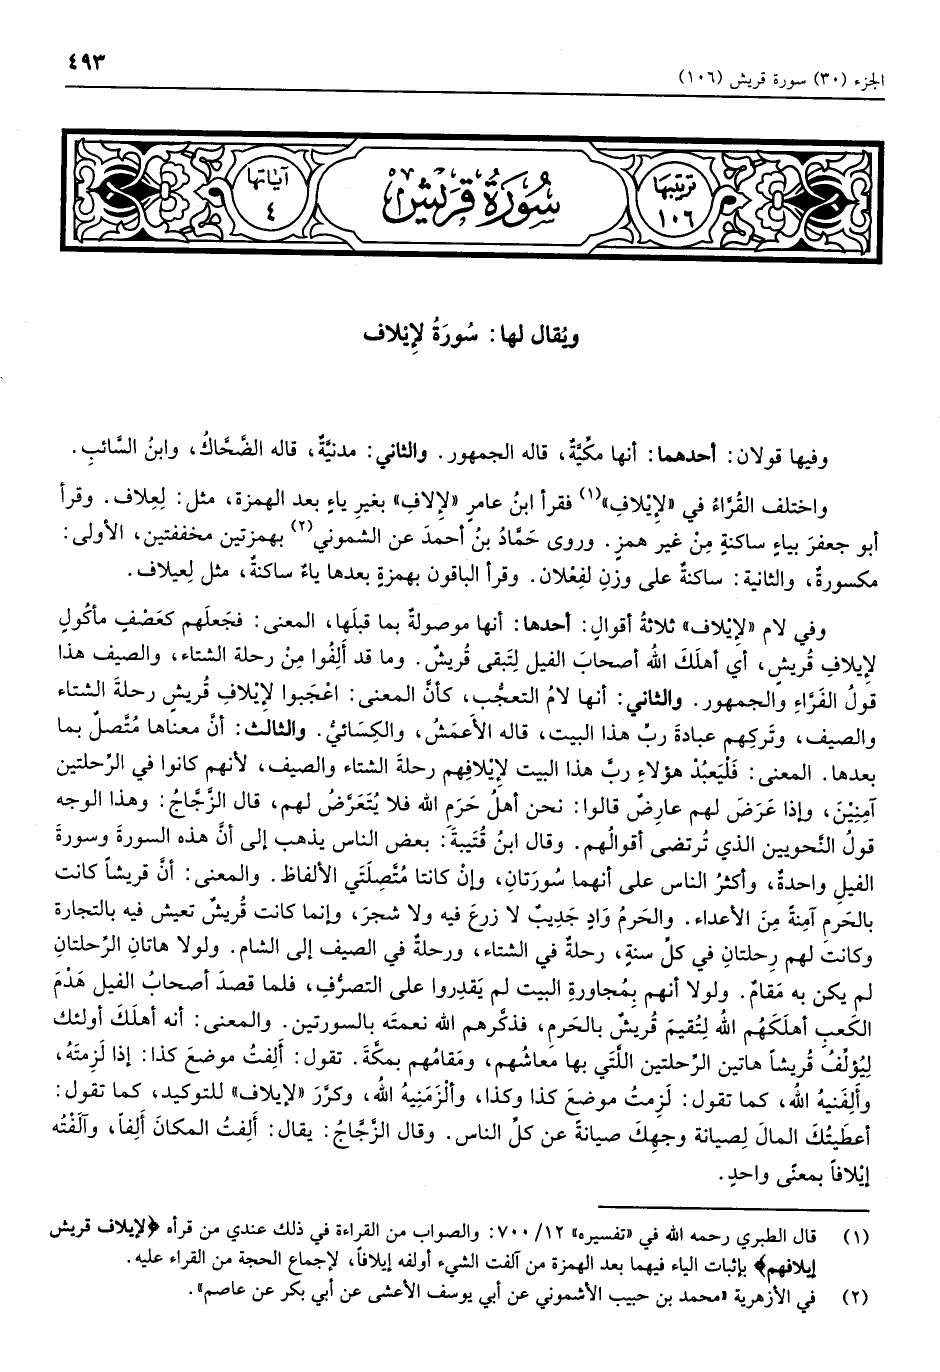 ٤٩٣
الجزء (٣٠) سورة قريش (١٠٦)
ترتيبها
١٠٦
سُورَةُ قُرَيْشٍ
آياتها
٤
ويُقال لها: سُورَةُ لِإيْلاف
وفيها قولان: أحدهما: أنها مكِّيَّةٌ، قاله الجمهور. والثاني: مدنيَّةٌ، قاله الضَّحَّاكُ، وابنُ السَّائبِ.
واختلف القُرَّاءُ في «لإيْلافِ»(١) فقرأ ابنُ عامرٍ «لإلافِ» بغيرِ ياءٍ بعد الهمزة، مثل: لِعِلاف. وقرأ
أبو جعفرَ بياءٍ ساكنةٍ مِنْ غير همزٍ. وروى حَمَّادُ بنُ أحمدَ عن الشموني(٢) بهمزتين مخففتين، الأولى:
مكسورةٌ، والثانية: ساكنةٌ على وزنِ لفِعْلان. وقرأ الباقون بهمزةٍ بعدها ياءٌ ساكنةٌ، مثل لِعيلاف.
وفي لام «لإيْلاف» ثلاثةُ أقوالٍ: أحدها: أنها موصولةٌ بما قبلَها، المعنى: فجَعلَهم كعَصْفٍ مأكُولٍ
لإيلافِ قُريشٍ، أي أهلَكَ اللهُ أصحابَ الفيل لِتَبقى قُريشٌ. وما قد أَلِفُوا مِنْ رحلة الشتاء، والصيف هذا
قولُ الفَرَّاءِ والجمهور. والثاني: أنها لامُ التعجُّب، كأنَّ المعنى: اعْجَبوا لإيْلافِ قُريشٍ رحلةَ الشتاء
والصيف، وتَركِهم عبادةَ ربِّ هذا البيت، قاله الأعمَشُ، والكِسَائيُّ. والثالث: أنَّ معناها مُتَّصلٌ بما
بعدها. المعنى: فَلْيَعبُدْ هؤلاءِ ربَّ هذا البيت لإيْلافِهم رحلةَ الشتاء والصيف، لأنهم كانوا في الرِّحلتين
آمِنِيْنَ، وإذا عَرَضَ لهم عارِضٌ قالوا: نحن أهلُ حَرَمِ الله فلا يُتَعَرَّضُ لهم، قال الزَّجَّاجُ: وهذا الوجه
قولُ النَّحويين الذي تُرتضى أقوالُهم. وقال ابنُ قُتَيبةَ: بعض الناس يذهب إلى أنَّ هذه السورةَ وسورةَ
الفيلِ واحدةٌ، وأكثرُ الناس على أنهما سُورَتانِ، وإنْ كانتا مُتَّصِلَتَي الألفاظ. والمعنى: أنَّ قريشاً كانت
بالحَرمِ آمِنةً مِنَ الأعداء. والحَرمُ وَادٍ جَديبٌ لا زرعَ فيه ولا شجرَ، وإنما كانت قُريشٌ تعيش فيه بالتجارة
وكانت لهم رِحلتانِ في كلِّ سنةٍ، رحلةٌ في الشتاء، ورحلةٌ في الصيف إلى الشام. ولولا هاتان الرِّحلتانِ
لم يكن به مَقامٌ. ولولا أنهم بمُجاورةِ البيت لم يَقدِروا على التصرُّفِ، فلما قصدَ أصحابُ الفيل هَدْمَ
الكَعبِ أهلَكَهُم اللهُ لِتُقيمَ قُريشٌ بالحَرمِ، فذكَّرهم الله نعمتَه بالسورتين. والمعنى: أنه أهلَكَ أولئك
لِيُؤلِّفُ قُريشاً هاتين الرِّحلتين اللَّتَي بها معاشُهم، ومَقامُهم بمكَّةَ. تقول: أَلِفتُ موضعَ كذا: إذا لَزِمتَهُ،
وأَلِفَنيهُ الله، كما تقول: لَزِمتُ موضعَ كذا وكذا، وألْزَمَنِيهُ اللهُ، وكرَّرَ «لإيلاف» للتوكيد، كما تقول:
أعطَيتُكَ المالَ لِصيانة وجهِكَ صيانةً عن كلِّ الناس. وقال الزَّجَّاجُ: يقال: أَلِفتُ المكانَ أَلِفاً، وآلَفْتُه
إيْلافاً بمعنًى واحدٍ.
(١) قال الطبري رحمه الله في «تفسيره» ١٢/ ٧٠٠: والصواب من القراءة في ذلك عندي من قرأه ﴿لإيلاف قريش
إيلافهم﴾ بإثبات الياء فيهما بعد الهمزة من آلفت الشيء أولفه إيلافاً، لإجماع الحجة من القراء عليه.
(٢) في الأزهرية «محمد بن حبيب الأشموني عن أبي يوسف الأعشى عن أبي بكر عن عاصم».